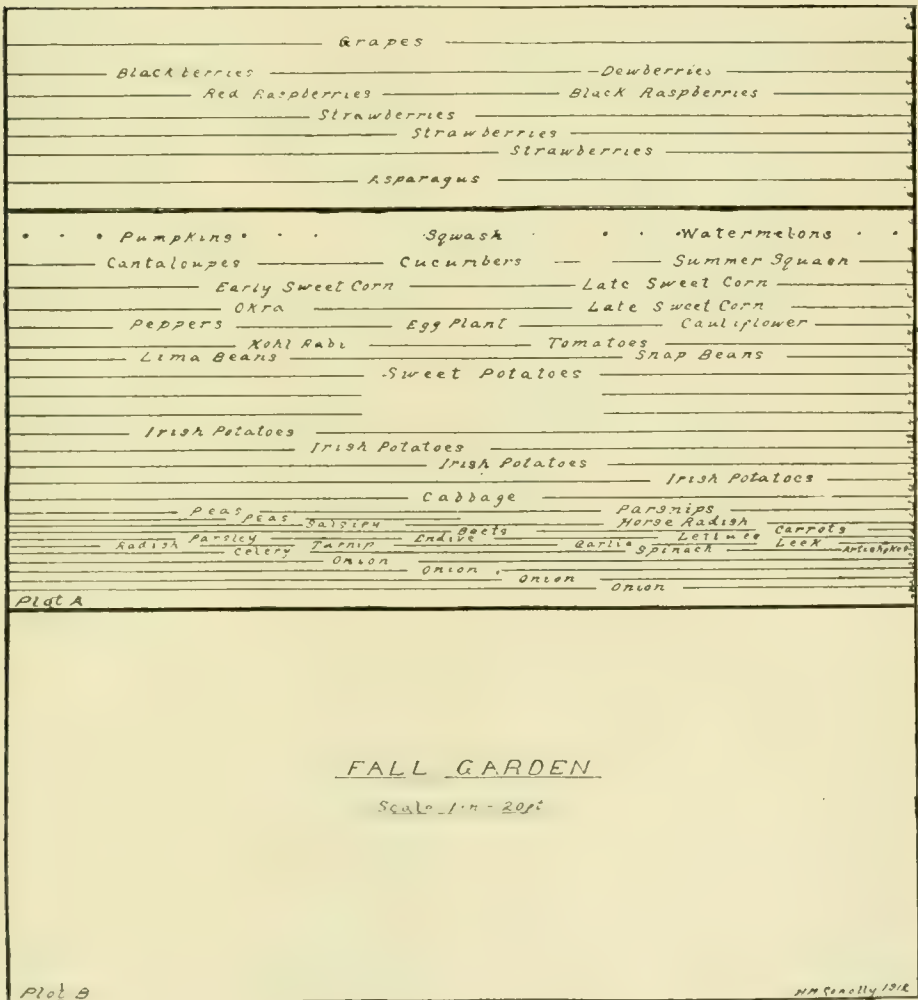 Grapes
Blackberries Dewberries
Red Raspberries Black Raspberries
Strawberries
Strawberries
Strawberries
Asparagus
Pumpkins Squash Watermelons
Cantaloupes Cucumbers Summer Squash
Early Sweet Corn Late Sweet Corn
Okra Late Sweet Corn
Peppers Egg Plant Cauliflower
Kohl Rabi Tomatoes
Lima Beans Snap Beans
Sweet Potatoes
Irish Potatoes
Irish Potatoes
Irish Potatoes
Irish Potatoes
Cabbage
Peas Parsnips
Peas Salsify Horse Radish
Beets Carrots
Parsley Endive Lettuce
Radish Turnip Garlic Leek
Celery Spinach Artichokes
Onion
Onion
Onion
Onion
Plot A
FALL GARDEN
Scale 1in - 20ft
Plot B
HM Conolly 1912